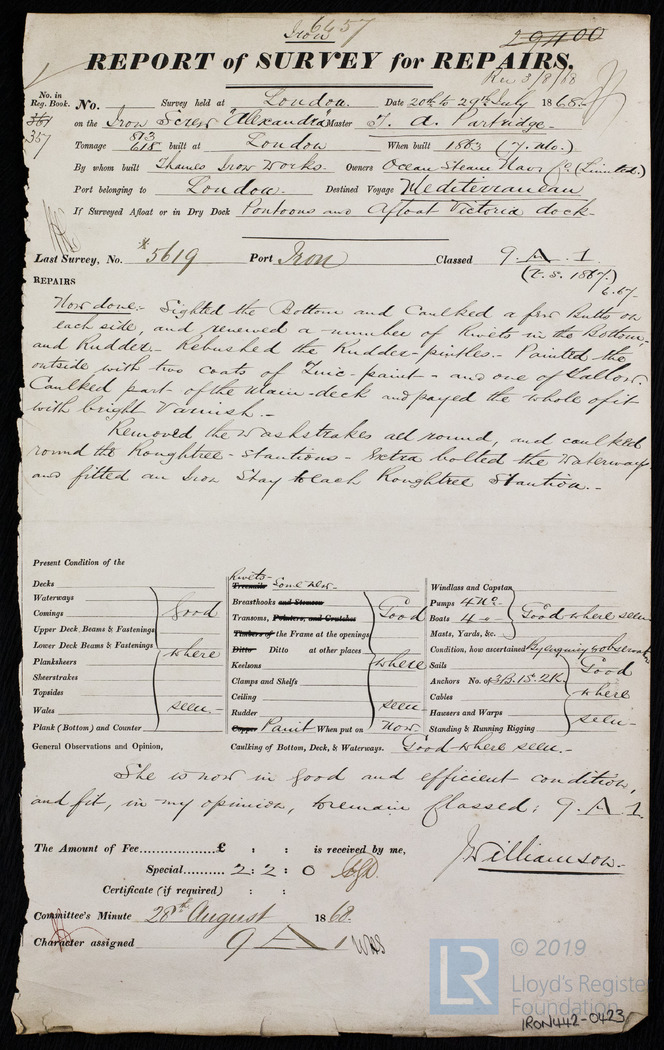 Iron 6457
29400
REPORT of SURVEY for REPAIRS.
Rec 3/8/68
No. in Reg. Book.
No. Survey held at London Date 20th to 29th July 1868
361
367
on the Iron Screw "Alexandra" Master T. A. Partridge
Tonnage 813 618 built at London When built 1863 (7. Mo.)
By whom built Thames Iron Works. Owners Ocean Steam Navn Co. (Limited.)
Port belonging to London. Destined Voyage Mediterranean
If Surveyed Afloat or in Dry Dock Pontoons and Afloat Victoria dock.
Last Survey, No. *5619 Port Iron Classed 9. A. 1
(T.S. 1867.)
6.67.
REPAIRS
Now done:- Sighted the Bottom and Caulked a few Butts on
each side, and renewed a number of Rivets in the Bottom,
and Rudder. Rebushed the Rudder-pintles.- Painted the
outside with two coats of Zinc-paint - and one of Tallow.
Caulked part of the Main-deck and payed the whole of it
with bright Varnish.-
Removed the Washstrakes all round, and caulked
round the Roughtree-stantions - Extra bolted the Waterways
and fitted an Iron Stay to each Roughtree Stantion.-
Present Condition of the
Decks
Waterways
Comings
Upper Deck Beams & Fastenings
Lower Deck Beams & Fastenings
Planksheers
Sheerstrakes
Topsides
Wales
Plank (Bottom) and Counter
Good
where
seen.-
Rivets-
Treenails Some New-
Breasthooks and Stemson
Transoms, Pointers, and Crutches
Timbers of the Frame at the openings
Ditto Ditto at other places
Keelsons
Clamps and Shelfs
Ceiling
Rudder
Copper Paint When put on Now
Good
where
seen-
Windlass and Capstan
Pumps 4 No.
Boats 4
Masts, Yards, &c.
Good where seen
Condition, how ascertained By enquiry & observation
Sails
Anchors No. of 3B. 1S. 2K.
Cables
Hawsers and Warps
Standing & Running Rigging
Good
where
seen-
General Observations and Opinion, Caulking of Bottom, Deck, & Waterways. Good where seen.-
She is now in good and efficient condition,
and fit, in my opinion, to remain Classed; 9. A. 1.
The Amount of Fee £ : : is received by me,
Special 2 : 2 : 0
Certificate (if required) : :
J Williamson.
Committee's Minute 28th August 1868.
Character assigned 9 A 1
© 2019
LR
Lloyd's Register
Foundation
IRON442-0423